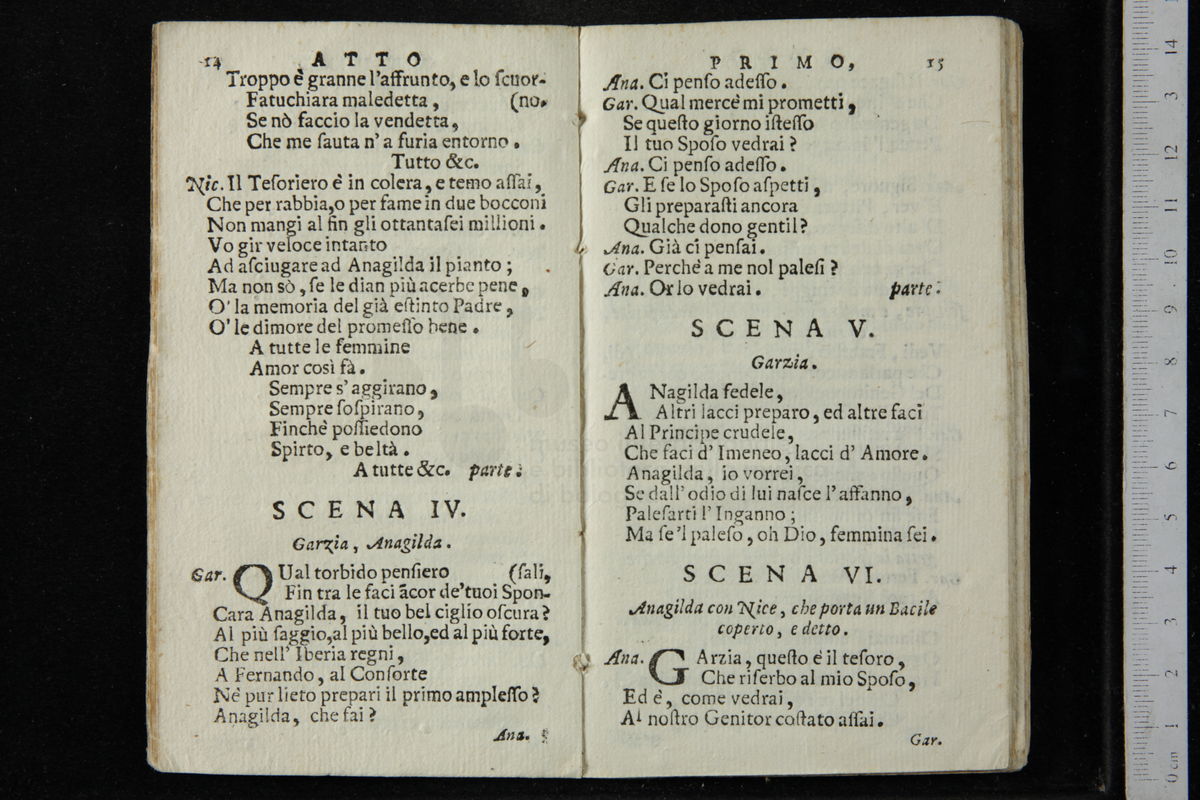 14 ATTO
Troppo è granne l'affrunto, e lo ſcuor-
Fatuchiara maledetta, (no.
Se nò faccio la vendetta,
Che me ſauta n' a furia entorno.
Tutto &c.
Nic. Il Teſoriero è in colera, e temo aſſai,
Che per rabbia, o per fame in due bocconi
Non mangi al fin gli ottantaſei millioni.
Vo gir veloce intanto
Ad aſciugare ad Anagilda il pianto;
Ma non sò, ſe le dian più acerbe pene,
O' la memoria del già eſtinto Padre,
O' le dimore del promeſſo bene.
A tutte le femmine
Amor così fà.
Sempre s' aggirano,
Sempre ſoſpirano,
Finchè poſſiedono
Spirto, e beltà.
A tutte &c. parte.
SCENA IV.
Garzia, Anagilda.
Gar. QUal torbido penſiero (ſali,
Fin tra le faci ãcor de' tuoi Spon-
Cara Anagilda, il tuo bel ciglio oſcura?
Al più ſaggio, al più bello, ed al più forte,
Che nell' Iberia regni,
A Fernando, al Conſorte
Nè pur lieto prepari il primo ampleſſo?
Anagilda, che fai?
Ana.
PRIMO, 15
Ana. Ci penſo adeſſo.
Gar. Qual mercè mi prometti,
Se queſto giorno iſteſſo
Il tuo Spoſo vedrai?
Ana. Ci penſo adeſſo.
Gar. E ſe lo Spoſo aſpetti,
Gli preparaſti ancora
Qualche dono gentil?
Ana. Già ci penſai.
Gar. Perchè a me nol paleſi?
Ana. Or lo vedrai. parte.
SCENA V.
Garzia.
ANagilda fedele,
Altri lacci preparo, ed altre faci
Al Principe crudele,
Che faci d' Imeneo, lacci d' Amore.
Anagilda, io vorrei,
Se dall' odio di lui naſce l'affanno,
Paleſarti l' Inganno;
Ma ſe 'l paleſo, oh Dio, femmina ſei.
SCENA VI.
Anagilda con Nice, che porta un Bacile
coperto, e detto.
Ana. GArzia, queſto è il teſoro,
Che riſerbo al mio Spoſo,
Ed è, come vedrai,
Al noſtro Genitor coſtato aſſai.
Gar.